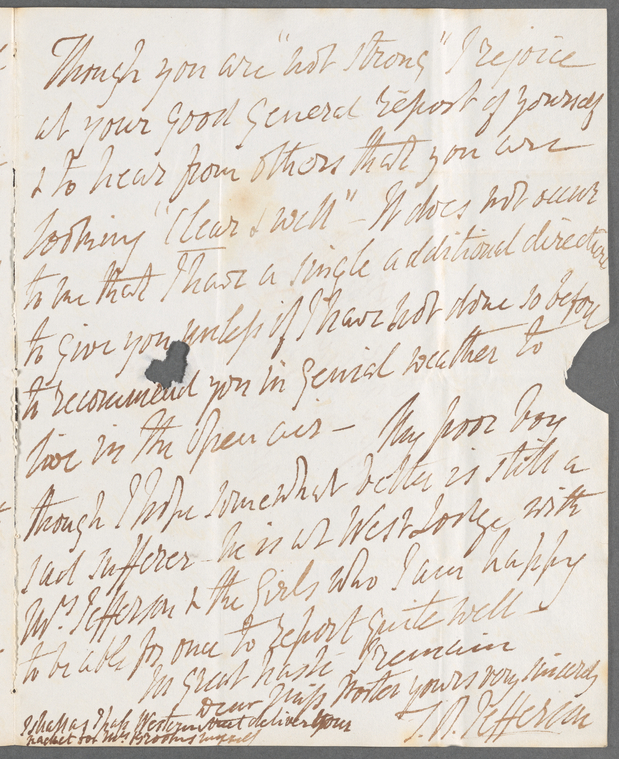 Though you are "not strong" I rejoice
at your good general report of yourself
& to hear from others that you are
looking "Clear & well" - It does not occur
to me that I have a single additional direction
to give you unless if I have not done so before
to recommend you in genial weather to
live in the open air - My poor boy
though I hope somewhat better is still a
sad sufferer - he is at West Lodge with
Mrs Jefferson & the girls who I am happy
to be able for once to report quite well -
In great haste I remain
Dear Miss Porter yours very sincerely
T. N. Jefferson
I shall as I pass deliver your
packet for Mrs myself